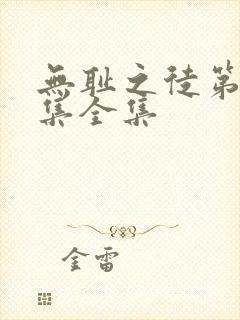 無耻之徒第
集全集
金雷